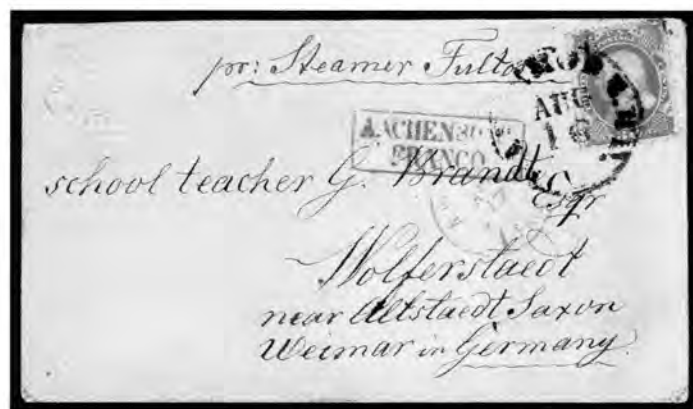 pr: Steamer Fulton
AUG
AACHEN
FRANCO
school teacher G. Brandt
Esqr
Wolferstaedt
near Altstaedt Saxon
Weimar in Germany.